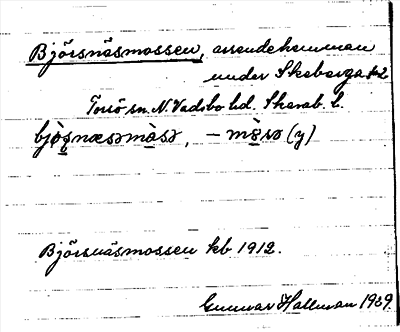 Björsnäsmossen, arrendehemman
under Skeberga 1-2
Torsö sn. N. Vadsbo hd. Skarab. l.
bjò̱s̱næsəmàsə, – mòsə (y)
Björsnäsmossen kb 1912.
Gunnar Hallman 1939